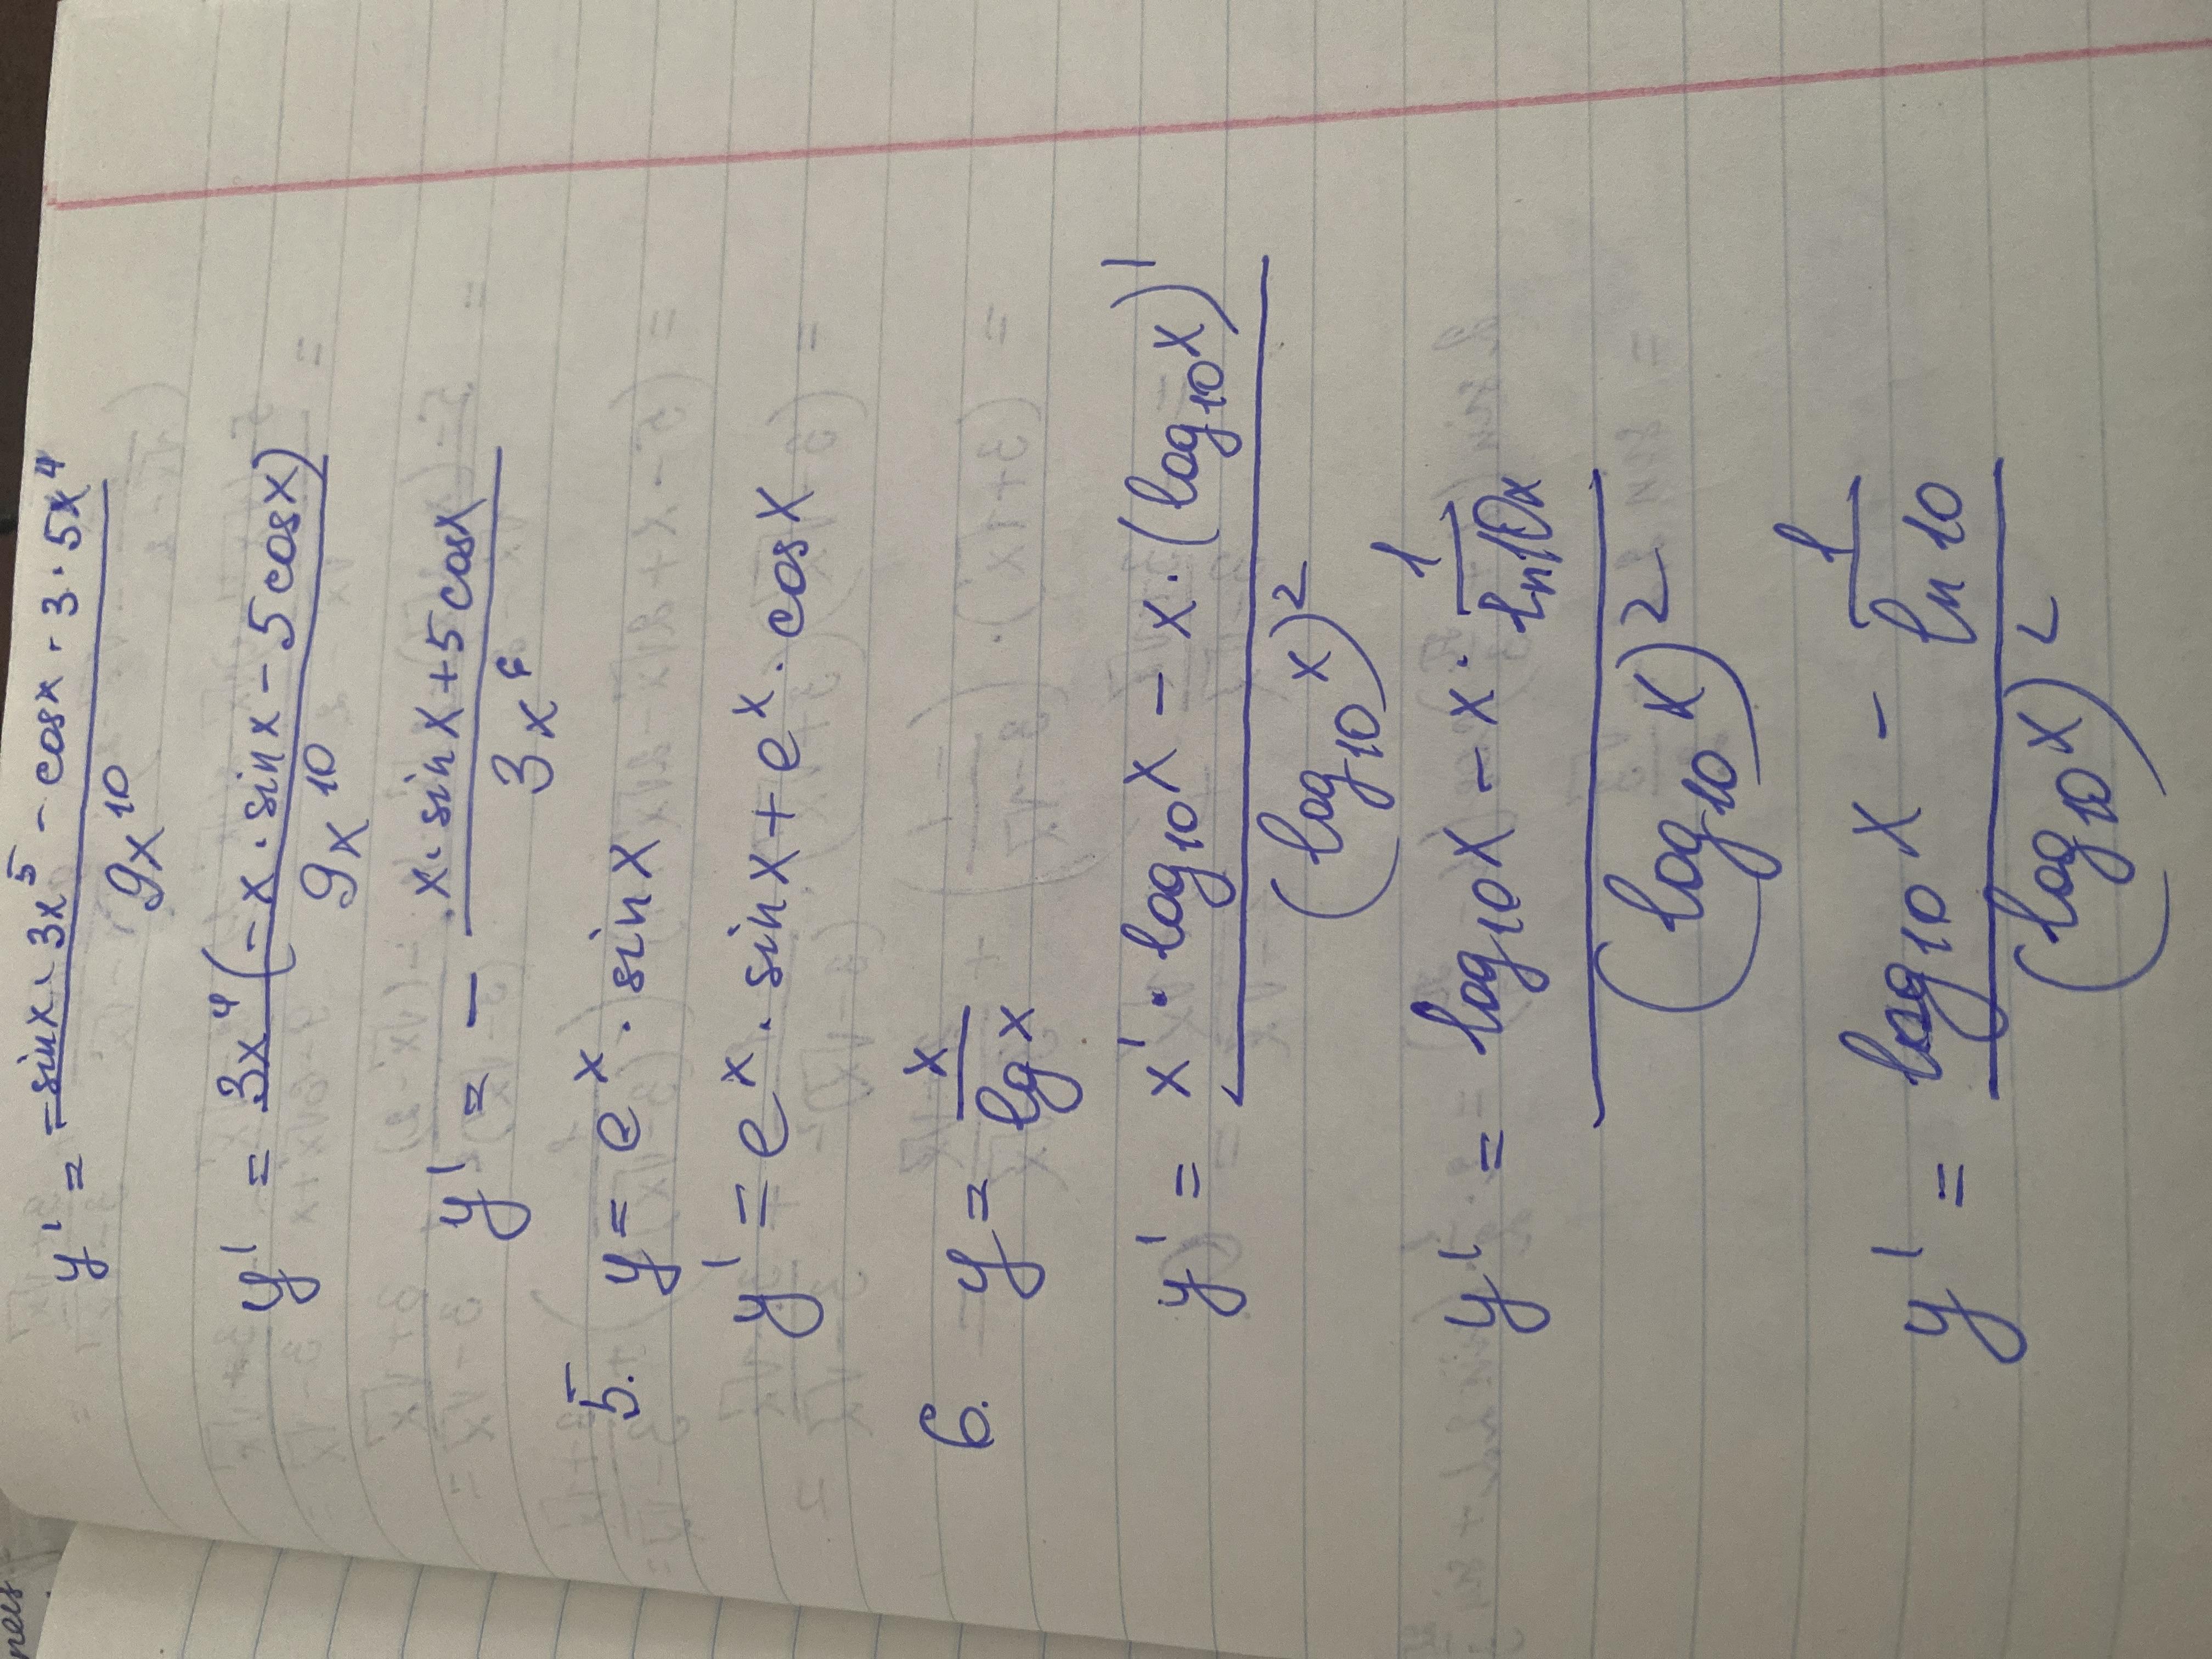 y' = -sinx · 3x⁵ - cosx · 3 · 5x⁴ / 9x¹⁰
y' = 3x⁴(-x · sinx - 5cosx) / 9x¹⁰
y' = - x · sinx + 5cosx / 3x⁶
5. y = eˣ · sinx
y' = eˣ · sinx + eˣ · cosx
6. y = x / lgx
y' = x' · log₁₀x - x · (log₁₀x)' / (log₁₀x)²
y' = log₁₀x - x · 1/ln10x / (log₁₀x)²
y' = log₁₀x - 1/ln10 / (log₁₀x)²